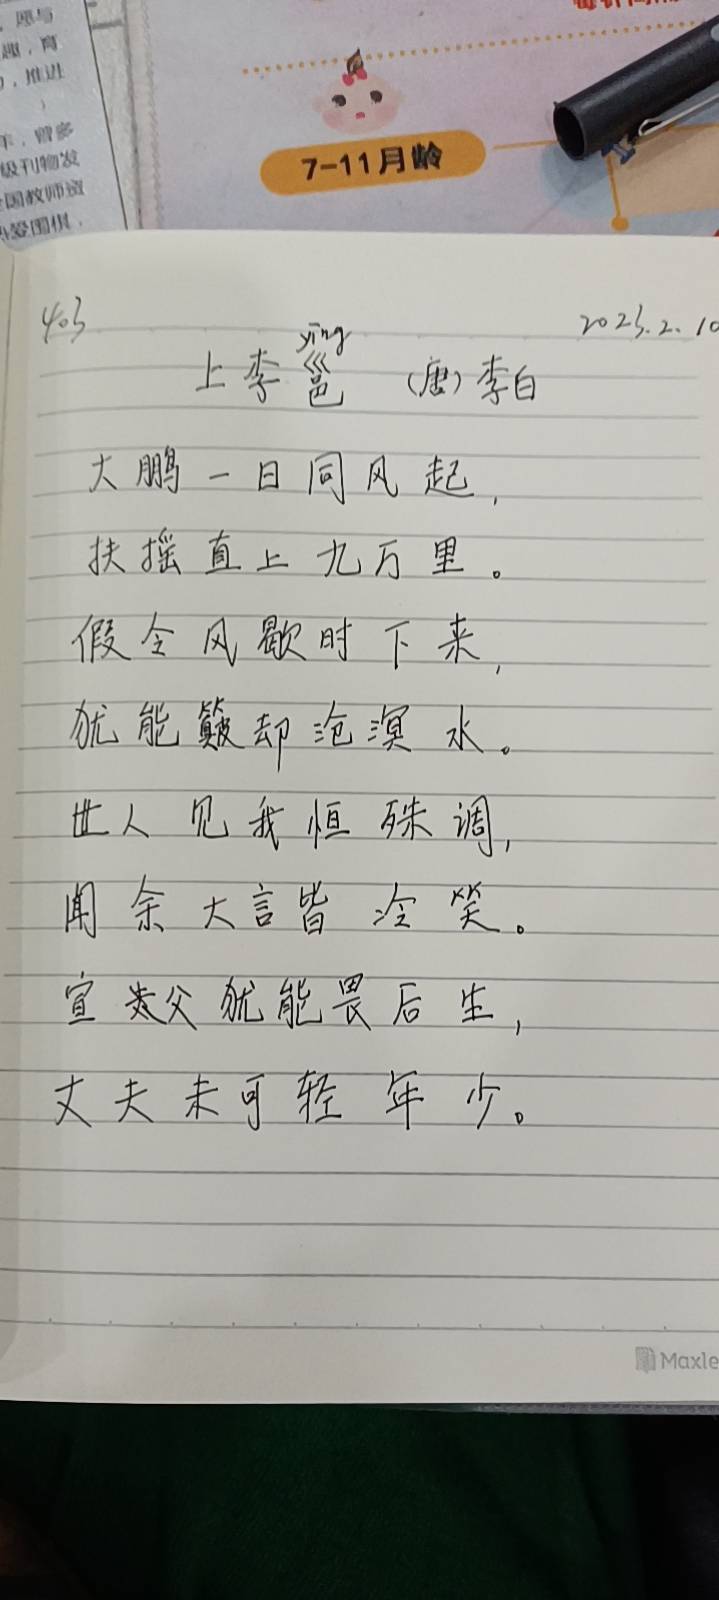 愿与
趣，育
，推进
年，曾多
级刊物发
全国教师资
热爱围棋，
7-11月龄
403
2023.2.10
yīng
上李邕 （唐）李白
大鹏一日同风起，
扶摇直上九万里。
假令风歇时下来，
犹能簸却沧溟水。
世人见我恒殊调，
闻余大言皆冷笑。
宣父犹能畏后生，
丈夫未可轻年少。
Maxle